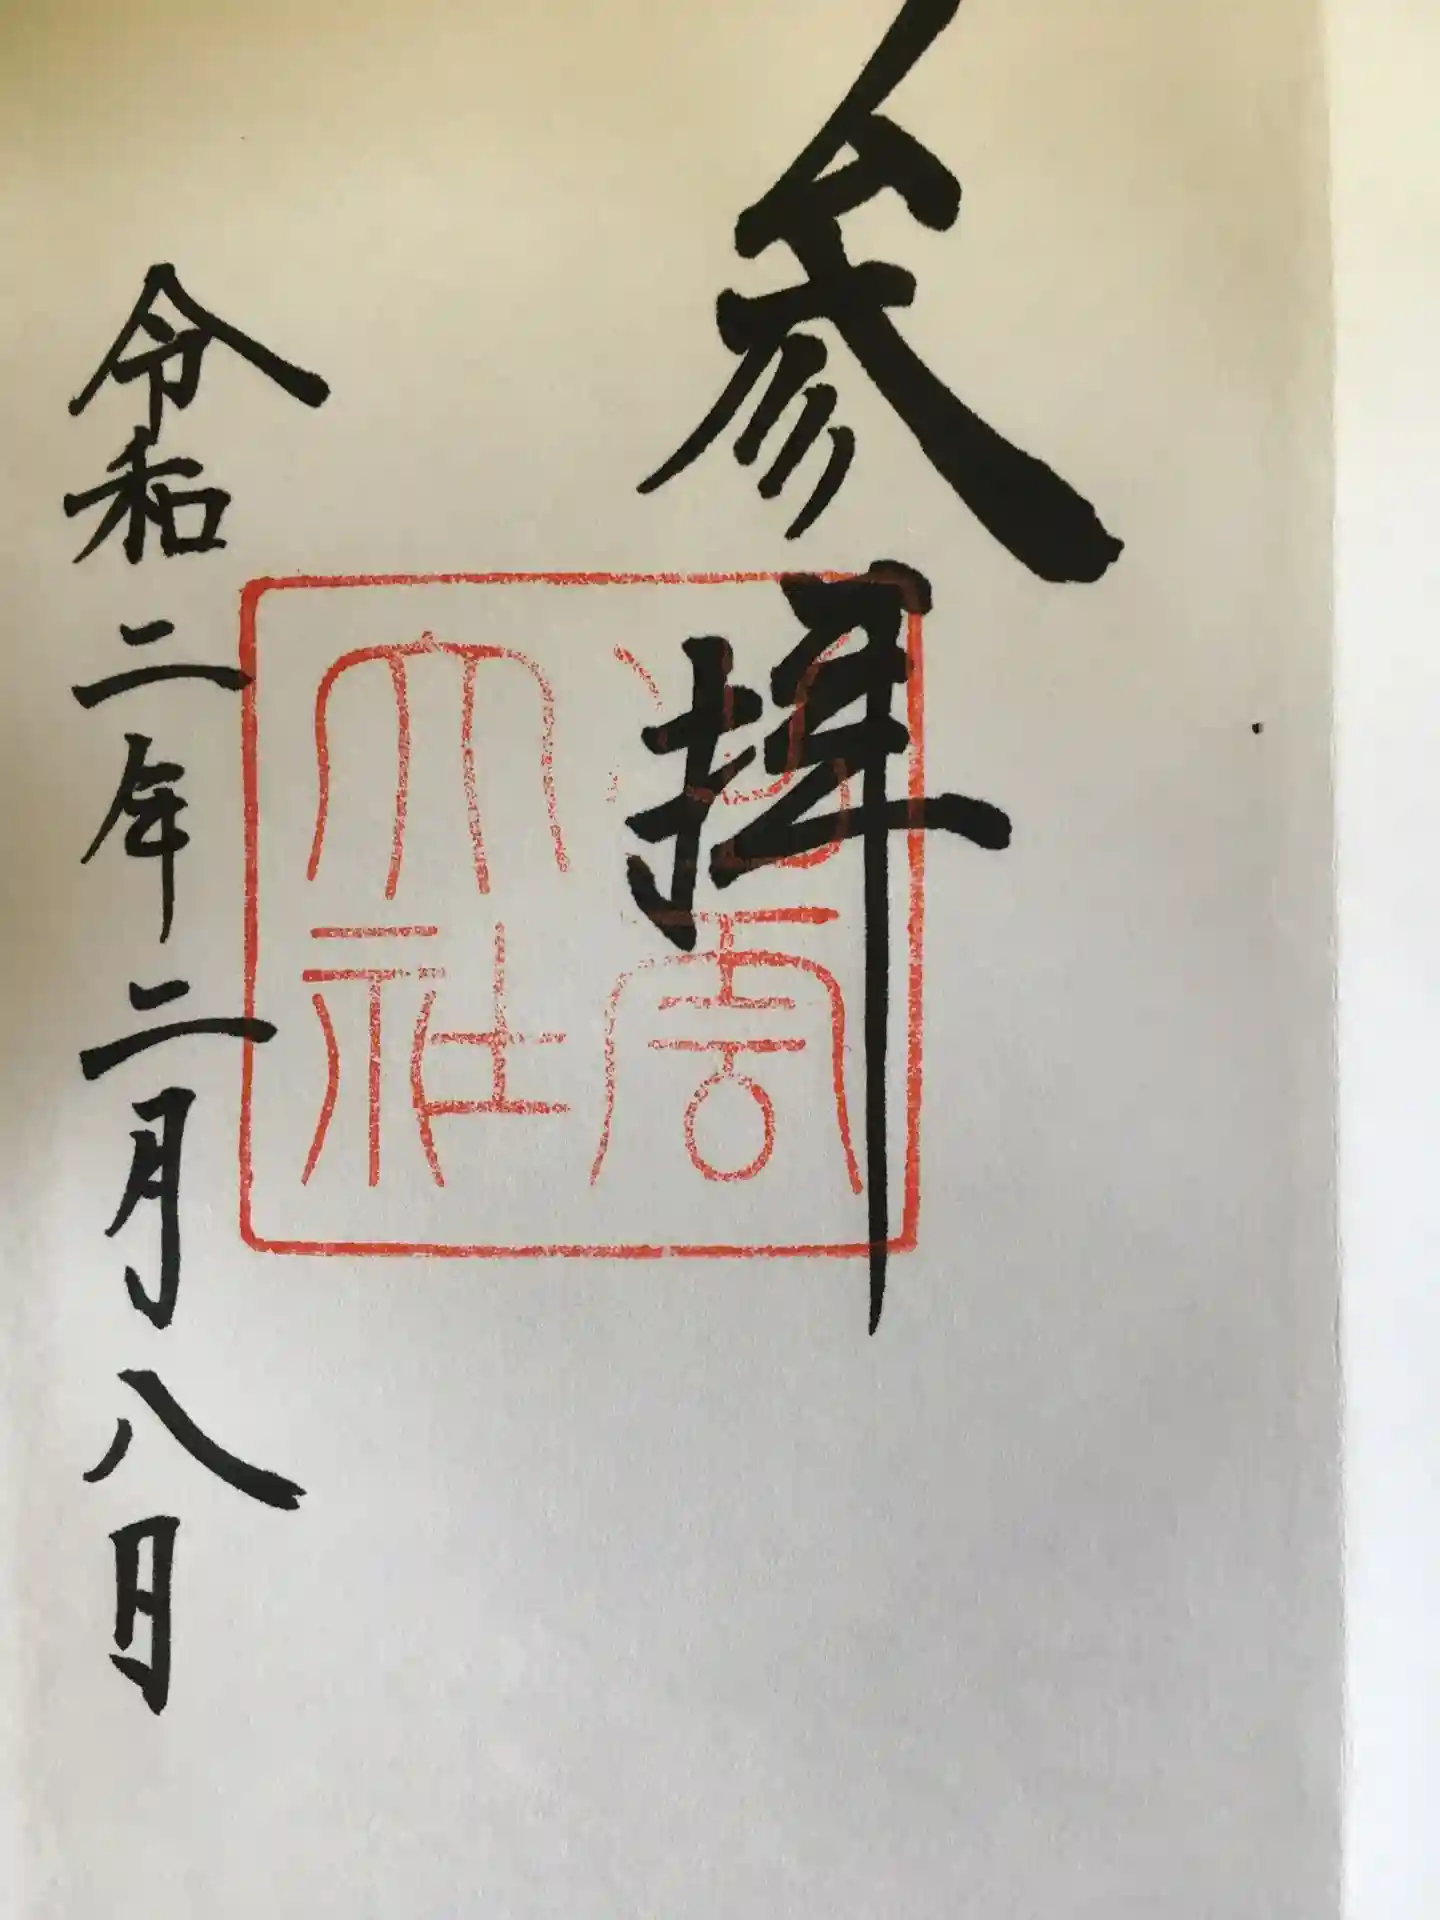 参拝
令和二年二月八日
大社